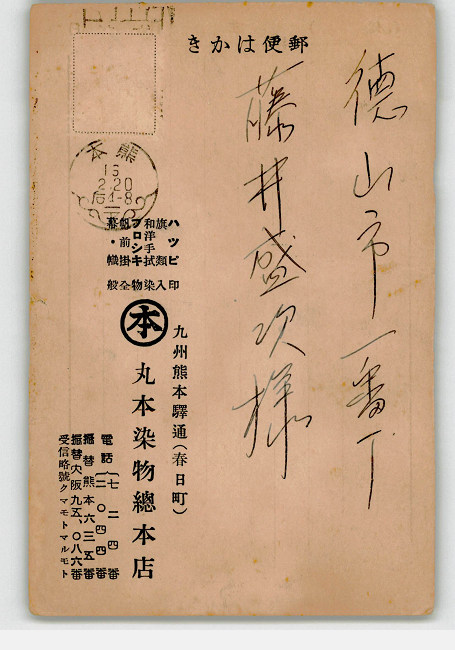 郵便はかき
徳山市一番丁
藤井盛次様
熊本
16
2.20
后4-8
ハッピ
旗類
和洋手拭
フロシキ
帆前掛
幕・幟
印入染物全般
本
九州熊本驛通(春日町)
丸本染物總本店
電話(七二四番
二〇四四番
振替熊本六三五番
振替大阪九五、〇八六番
受信略號クマモトマルモト